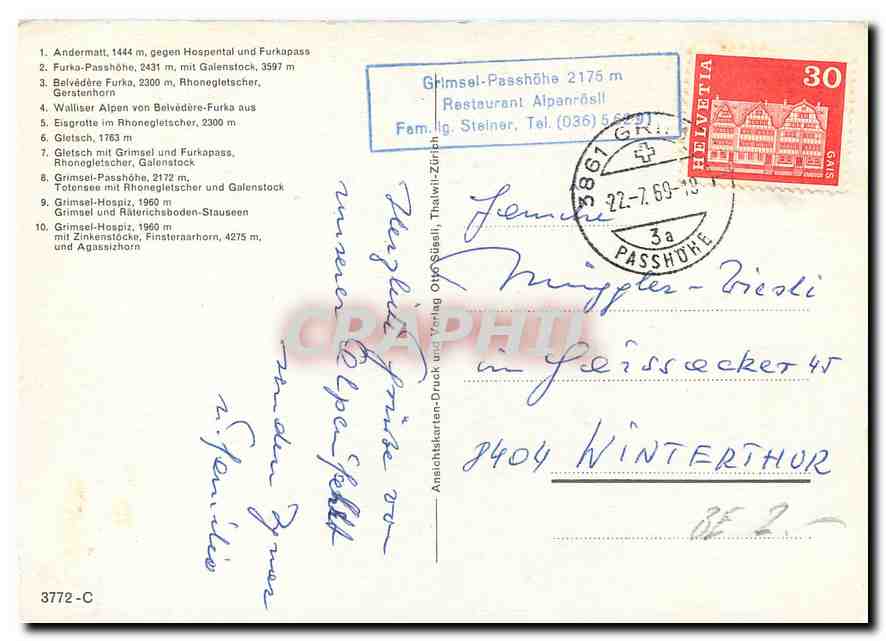 1. Andermatt, 1444 m, gegen Hospental und Furkapass
2. Furka-Passhöhe, 2431 m, mit Galenstock, 3597 m
3. Belvédère Furka, 2300 m, Rhonegletscher,
Gerstenhorn
4. Walliser Alpen von Belvédère-Furka aus
5. Eisgrotte im Rhonegletscher, 2300 m
6. Gletsch, 1763 m
7. Gletsch mit Grimsel und Furkapass,
Rhonegletscher, Galenstock
8. Grimsel-Passhöhe, 2172 m,
Totensee mit Rhonegletscher und Galenstock
9. Grimsel-Hospiz, 1960 m
Grimsel und Räterichsboden-Stauseen
10. Grimsel-Hospiz, 1960 m
mit Zinkenstöcke, Finsteraarhorn, 4275 m,
und Agassizhorn
3772-C
Herzliche Grüsse von
unserer Alpenfahrt
senden
u. Familie
Ansichtskarten-Druck und Verlag Otto Süssli, Thalwil-Zürich
Grimsel-Passhöhe 2175 m
Restaurant Alpenrösli
Fam. Ig. Steiner, Tel. (036) 5 6291
HELVETIA
30
GAIS
3861 GRIMSEL
22.-7.69-18
3a
PASSHÖHE
Familie
Müggler-Wiesli
im Geissacker 45
8404 WINTERTHUR
BE 2.-
CRAPHIL